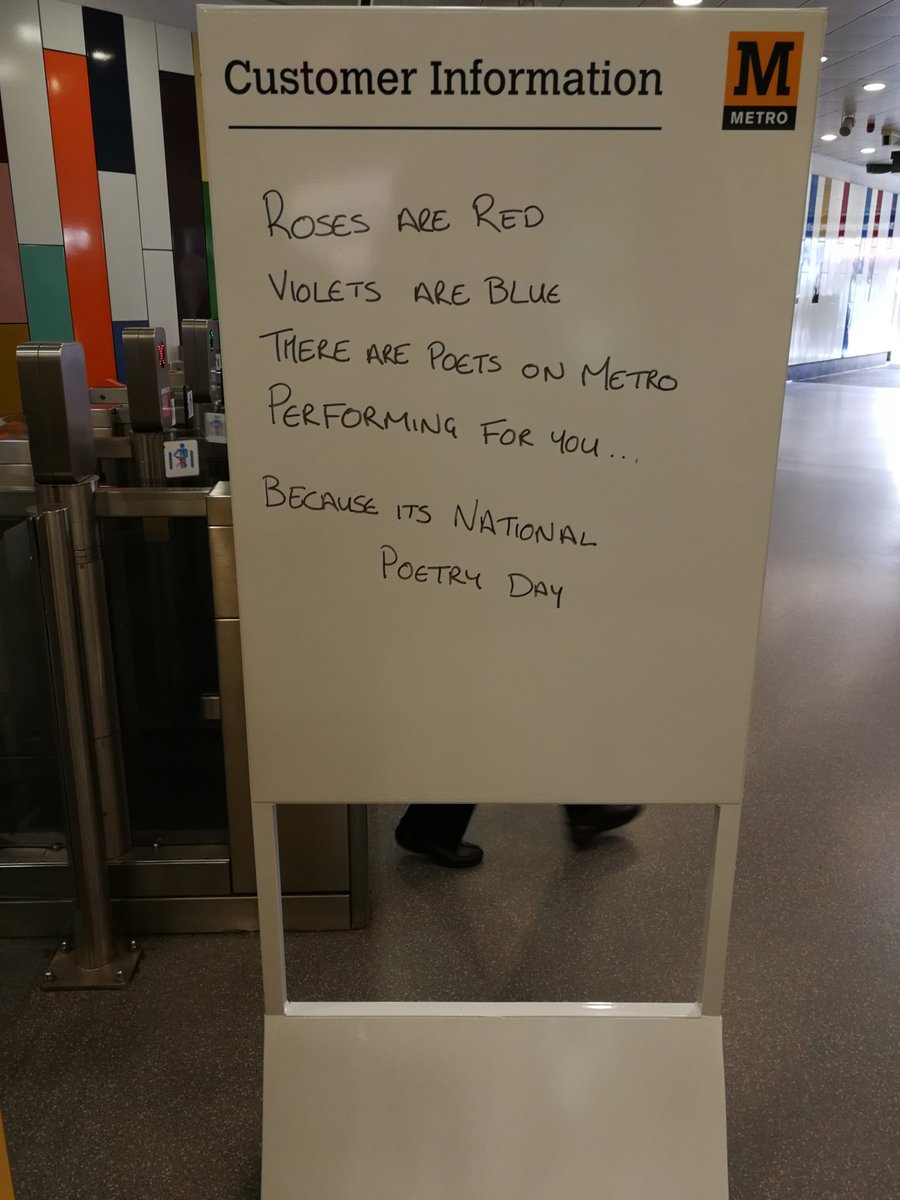 Customer Information
M
METRO
ROSES ARE RED
VIOLETS ARE BLUE
THERE ARE POETS ON METRO
PERFORMING FOR YOU...
BECAUSE ITS NATIONAL
POETRY DAY